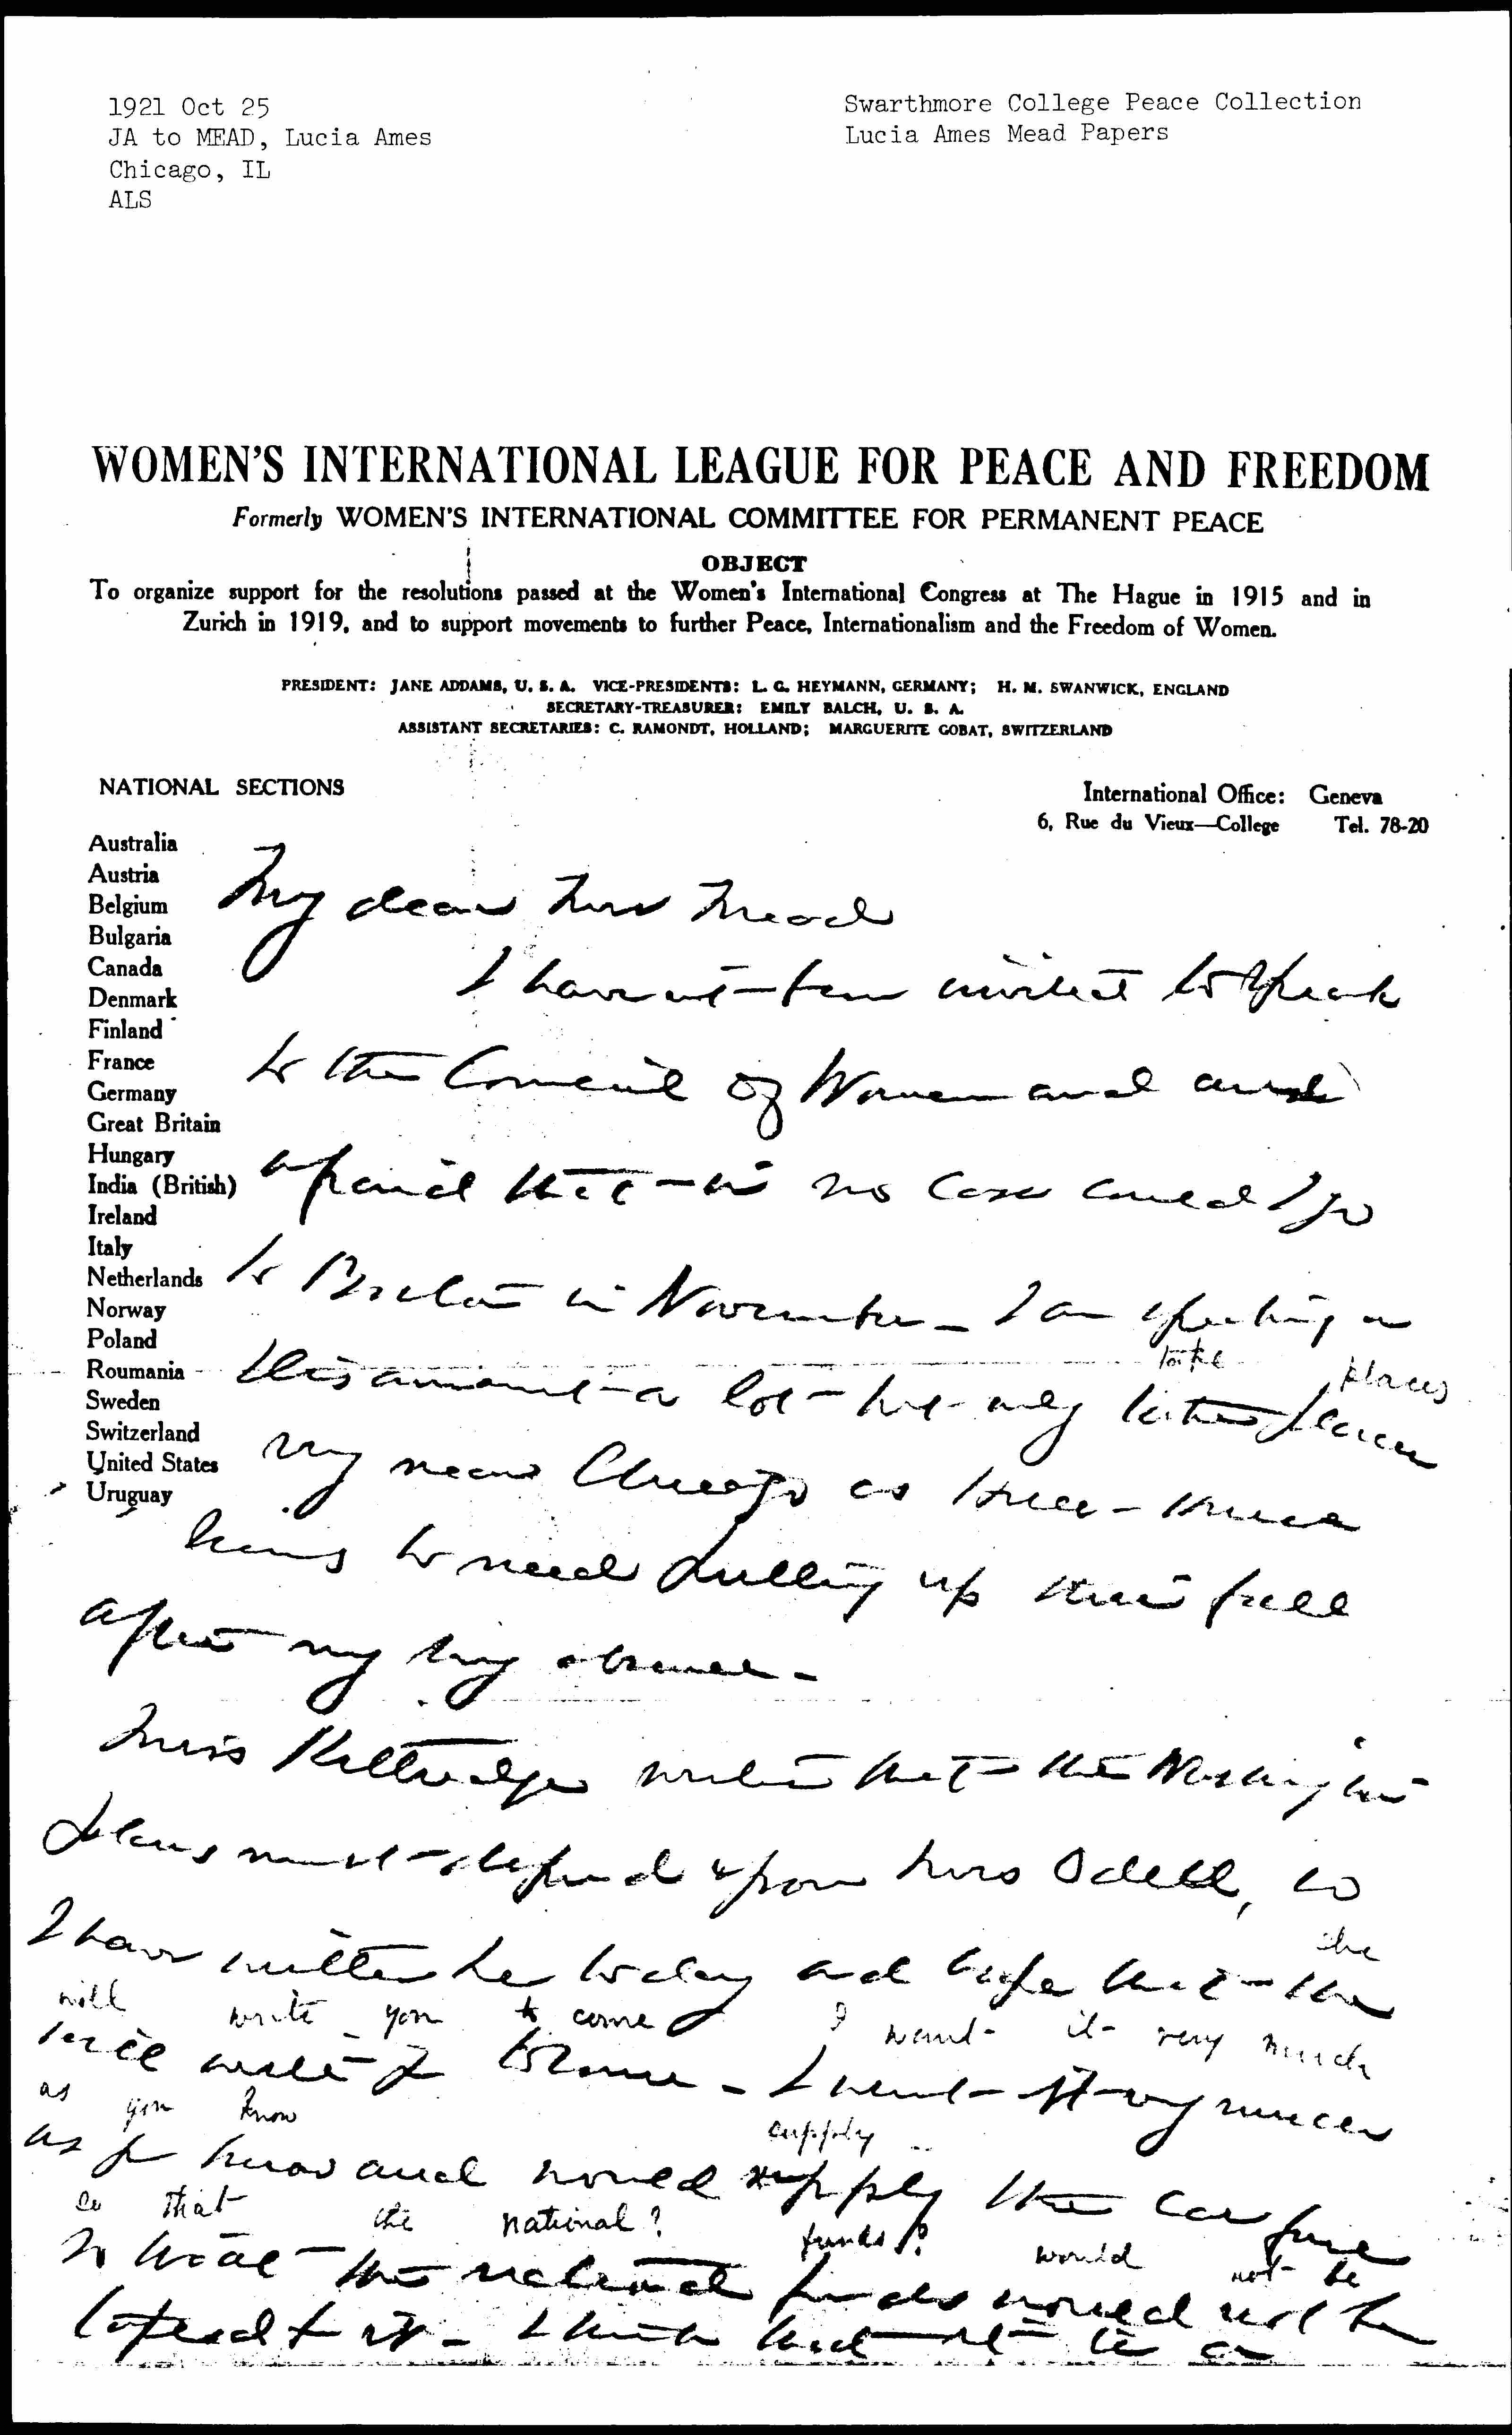 1921 Oct 25
JA to MEAD, Lucia Ames
Chicago, IL
ALS
Swarthmore College Peace Collection
Lucia Ames Mead Papers
WOMEN'S INTERNATIONAL LEAGUE FOR PEACE AND FREEDOM
Formerly WOMEN'S INTERNATIONAL COMMITTEE FOR PERMANENT PEACE
OBJECT
To organize support for the resolutions passed at the Women's International Congress at The Hague in 1915 and in
Zurich in 1919, and to support movements to further Peace, Internationalism and the Freedom of Women.
PRESIDENT: JANE ADDAMS, U. S. A. VICE-PRESIDENTS: L. G. HEYMANN, GERMANY; H. M. SWANWICK, ENGLAND
SECRETARY-TREASURER: EMILY BALCH, U. S. A.
ASSISTANT SECRETARIES: C. RAMONDT, HOLLAND; MARGUERITE GOBAT, SWITZERLAND
NATIONAL SECTIONS
Australia
Austria
Belgium
Bulgaria
Canada
Denmark
Finland
France
Germany
Great Britain
Hungary
India (British)
Ireland
Italy
Netherlands
Norway
Poland
Roumania
Sweden
Switzerland
United States
Uruguay
International Office: Geneva
6, Rue du Vieux—College Tel. 78-20
My dear Mrs Mead
I have not been invited to speak
to the Council of Women and am
afraid that in no case could I go
to Boston in November - I am speaking on
places
disarmament a lot - but only places
very near Chicago as Hull-House
seems to need pulling up this fall
after my long absence -
Miss Kittredge writes that the Washington
plans must depend upon Mrs Odell, so
she
I have written her today and hope that she
will write you to come I want it very much
will write you to come - I want it very much
as you know supply
as you know and would supply the car fare
so that the national? funds? would not be
so that the national funds would not be
it - I think that it is a